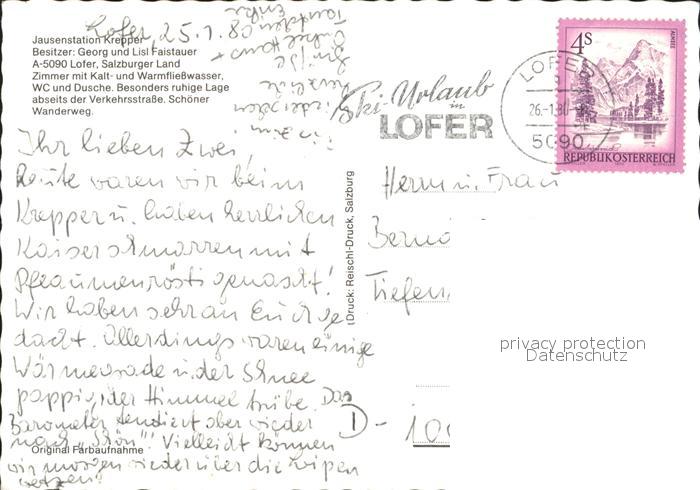 Lofer, 25.1.80
Jausenstation Krepper
Besitzer: Georg und Lisl Faistauer
A-5090 Lofer, Salzburger Land
Zimmer mit Kalt- und Warmfließwasser,
WC und Dusche. Besonders ruhige Lage
abseits der Verkehrsstraße. Schöner
Wanderweg.
Ihr lieben Zwei,
heute waren wir beim
Krepper u. haben herrlichen
Kaiserschmarren mit
Pfeaumenrösti genascht!
Wir haben sehr an Euch ge
dacht. Allerdings waren einige
Wärmegrade u. der Schnee
pappig, der Himmel trübe. Das
Barometer tendiert aber wieder
nach "Schön"! Vielleicht können
wir morgen wieder über die
wetzen!
Original Farbaufnahme
Onkel Hans +
Ski-Urlaub
in
LOFER
LOFER
26.-1.80
5090
4S
ALMSEE
REPUBLIK ÖSTERREICH
(Druck: Reischl-Druck, Salzburg
Herrn u. Frau
D-
privacy protection
Datenschutz